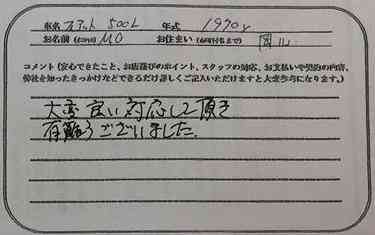 車名 フィアット 500L 年式 1970y
お名前 MO お住まい
コメント(安心できたこと、お店選びのポイント、スタッフの対応、お支払いや契約の内容、
弊社を知ったきっかけなどできるだけ詳しくご記入いただけますと大変参考になります。)
大変良い対応して頂き
有難うございました。